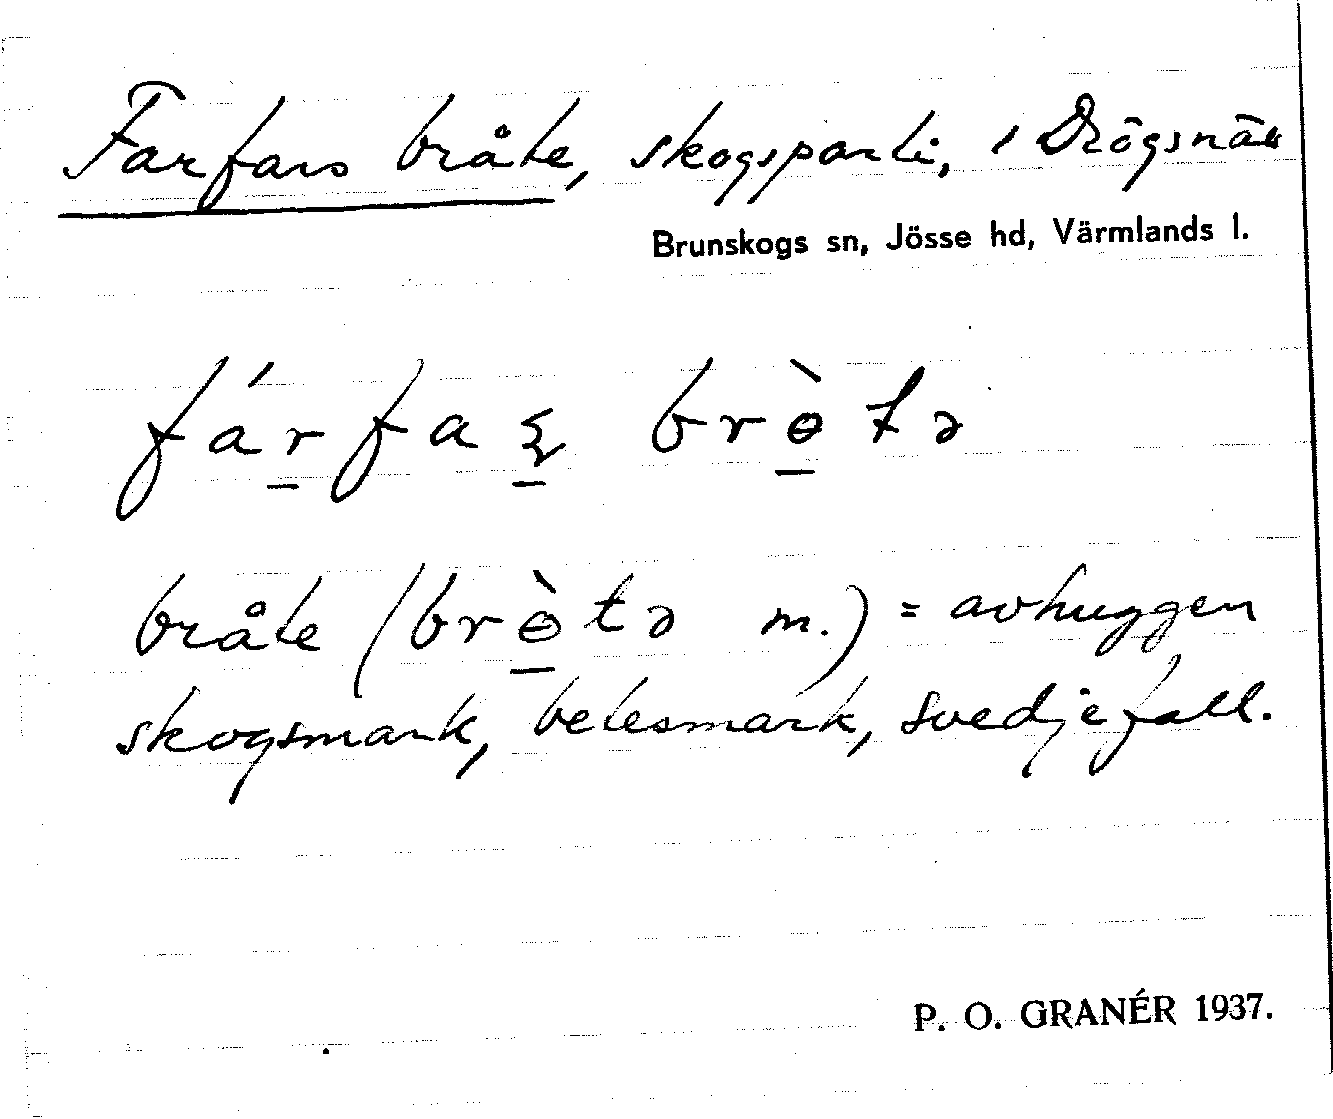 Farfars bråte, skogsparti, i Drögsnäs
Brunskogs sn, Jösse hd, Värmlands l.
fárfaʂ brɵ̀tə
bråte (brɵ̀tə m.) = avhuggen
skogsmark, betesmark, svedjefall.
P. O. GRANÉR 1937.